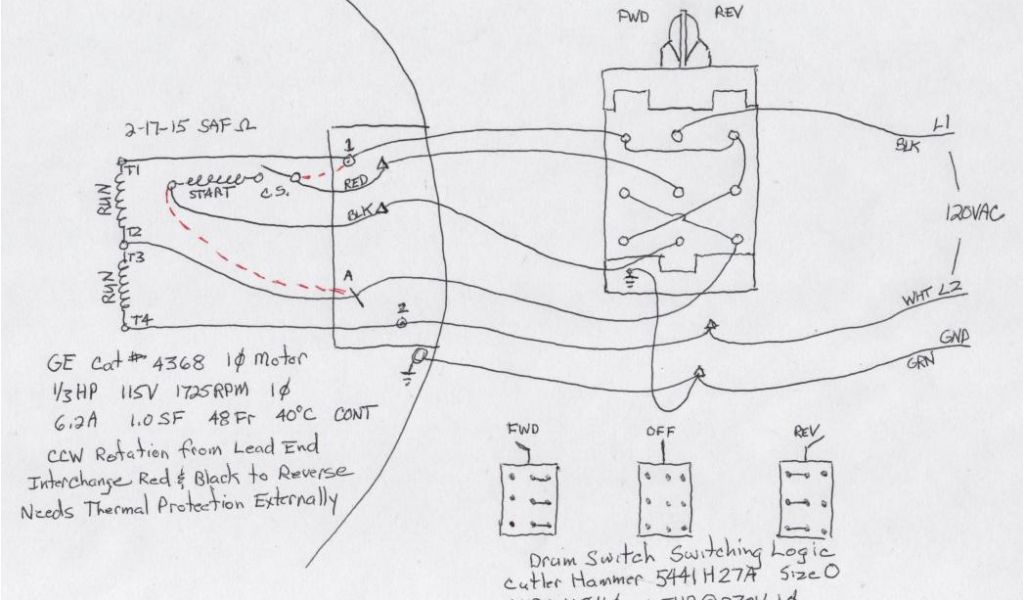 FWD REV
2-17-15 SAF Ω
L1
BLK
T1
1
RED
START
C.S.
RUN
BLK
120VAC
T2
T3
RUN
A
T4
2
WHT L2
GND
GRN
GE Cat# 4368 1φ Motor
1/3 HP 115V 1725RPM 1φ
6.2A 1.0 SF 48 Fr 40°C CONT
CCW Rotation from Lead End
Interchange Red & Black to Reverse
Needs Thermal Protection Externally
FWD OFF REV
Drum Switch Switching Logic
Cutler Hammer 5441H27A Size 0